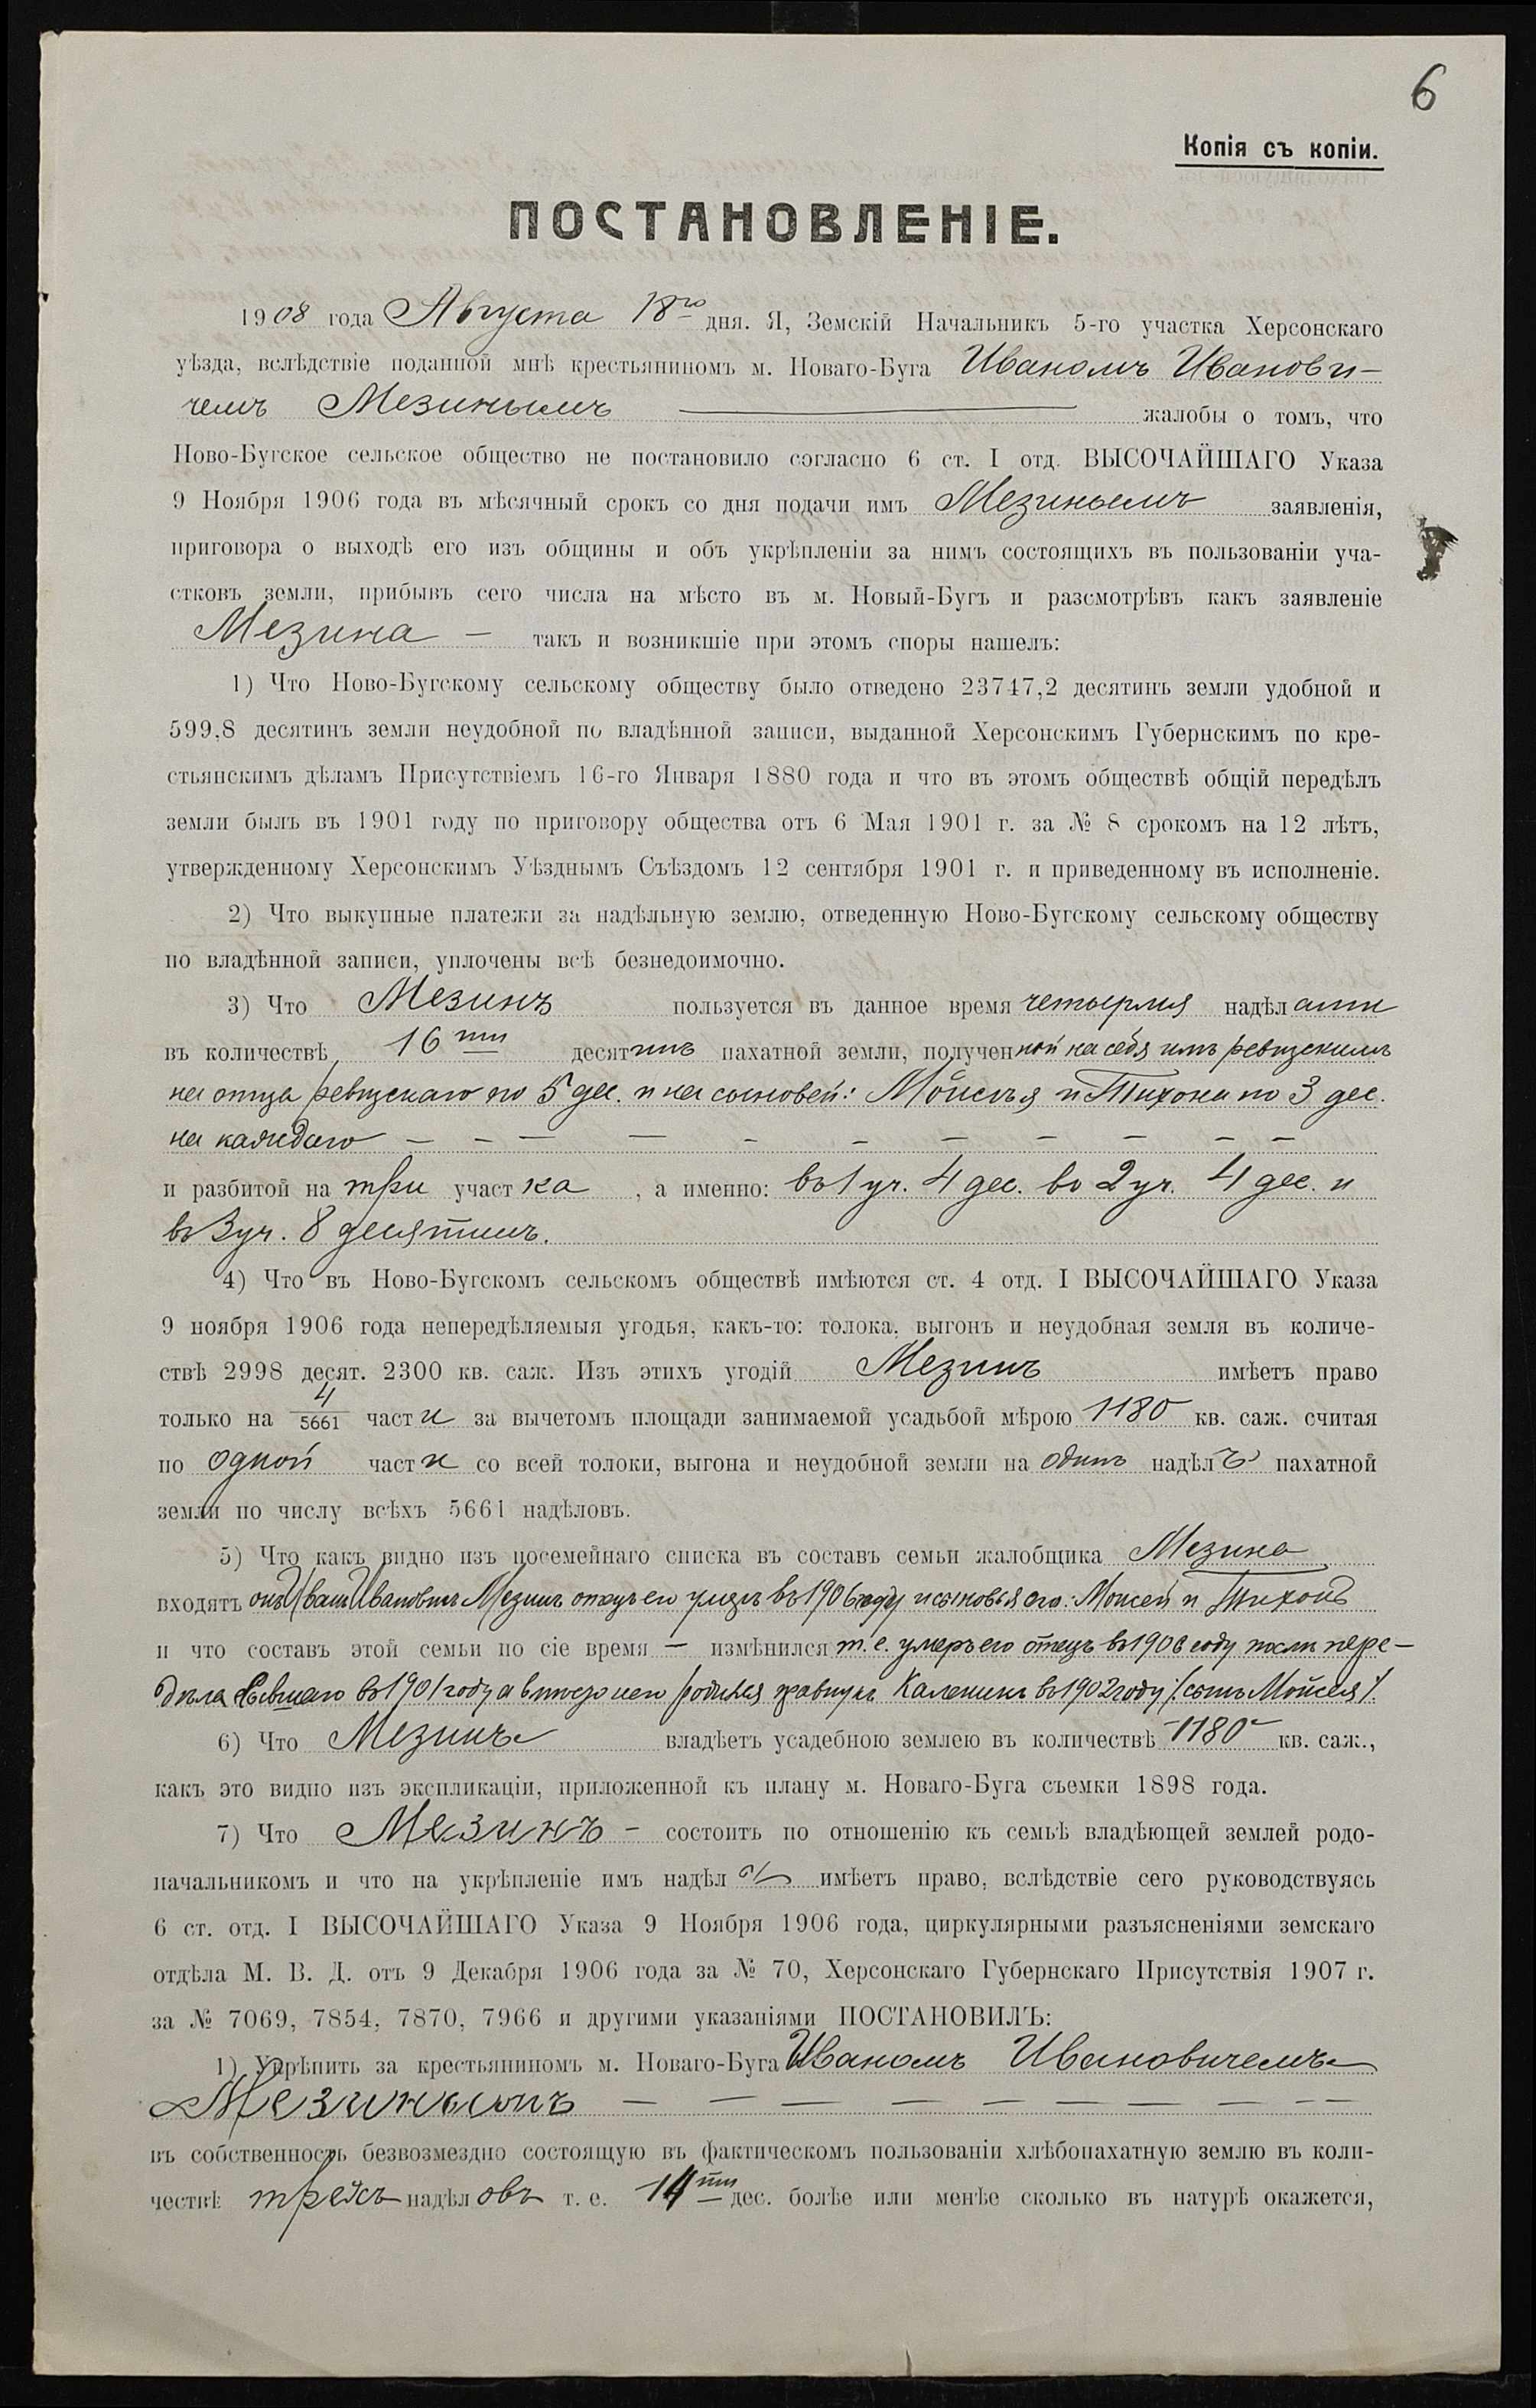 6
Копія съ копіи.
ПОСТАНОВЛЕНІЕ.
1908 года Августа 18го дня. Я, Земскій Начальникъ 5-го участка Херсонскаго
уѣзда, вслѣдствіе поданной мнѣ крестьяниномъ м. Новаго-Буга Иваномъ Иванови-
чемъ Мезинымъ жалобы о томъ, что
Ново-Бугское сельское общество не постановило согласно 6 ст. I отд. ВЫСОЧАЙШАГО Указа
9 Ноября 1906 года въ мѣсячный срокъ со дня подачи имъ Мезинымъ заявленія,
приговора о выходѣ его изъ общины и объ укрѣпленіи за нимъ состоящихъ въ пользованіи уча-
стковъ земли, прибывъ сего числа на мѣсто въ м. Новый-Бугъ и разсмотрѣвъ какъ заявленіе
Мезина — такъ и возникшіе при этомъ споры нашелъ:
1) Что Ново-Бугскому сельскому обществу было отведено 23747,2 десятинъ земли удобной и
599,8 десятинъ земли неудобной по владѣнной записи, выданной Херсонскимъ Губернскимъ по кре-
стьянскимъ дѣламъ Присутствіемъ 16-го Января 1880 года и что въ этомъ обществѣ общій передѣлъ
земли былъ въ 1901 году по приговору общества отъ 6 Мая 1901 г. за № 8 срокомъ на 12 лѣтъ,
утвержденному Херсонскимъ Уѣзднымъ Съѣздомъ 12 сентября 1901 г. и приведенному въ исполненіе.
2) Что выкупные платежи за надѣльную землю, отведенную Ново-Бугскому сельскому обществу
по владѣнной записи, уплочены всѣ безнедоимочно.
3) Что Мезинъ пользуется въ данное время четырмя надѣлами
въ количествѣ 16ти десятинъ пахатной земли, полученной на себя имъ ревизскимъ
на отца ревизскаго по 5 дес. и на сыновей: Мойсея и Тихона по 3 дес.
на каждаго — — — — — — — — — —
и разбитой на три участка, а именно: въ 1 уч. 4 дес. во 2 уч. 4 дес. и
въ 3 уч. 8 десятинъ.
4) Что въ Ново-Бугскомъ сельскомъ обществѣ имѣются ст. 4 отд. I ВЫСОЧАЙШАГО Указа
9 ноября 1906 года непередѣляемыя угодья, какъ-то: толока, выгонъ и неудобная земля въ количе-
ствѣ 2998 десят. 2300 кв. саж. Изъ этихъ угодій Мезинъ имѣетъ право
только на 4/5661 части за вычетомъ площади занимаемой усадьбой мѣрою 1180 кв. саж. считая
по одной части со всей толоки, выгона и неудобной земли на одинъ надѣлъ пахатной
земли по числу всѣхъ 5661 надѣловъ.
5) Что какъ видно изъ посемейнаго списка въ составъ семьи жалобщика Мезина
входятъ онъ Иванъ Ивановичъ Мезинъ отецъ его умеръ въ 1906 году и сыновья его: Мойсей и Тихонъ
и что составъ этой семьи по сіе время — измѣнился т. е. умеръ его отецъ въ 1906 году после пере-
дѣла бывшаго въ 1901 году а вместо него родился правнукъ Каленикъ въ 1902 году /: сынъ Мойсея :/.
6) Что Мезинъ владѣетъ усадебною землею въ количествѣ 1180 кв. саж.,
какъ это видно изъ экспликаціи, приложенной къ плану м. Новаго-Буга съемки 1898 года.
7) Что Мезинъ — состоитъ по отношенію къ семьѣ владѣющей землей родо-
начальникомъ и что на укрѣпленіе имъ надѣла имѣетъ право, вслѣдствіе сего руководствуясь
6 ст. отд. I ВЫСОЧАЙШАГО Указа 9 Ноября 1906 года, циркулярными разъясненіями земскаго
отдѣла М. В. Д. отъ 9 Декабря 1906 года за № 70, Херсонскаго Губернскаго Присутствія 1907 г.
за № 7069, 7854, 7870, 7966 и другими указаніями ПОСТАНОВИЛЪ:
1) Укрѣпить за крестьяниномъ м. Новаго-Буга Иваномъ Ивановичемъ
Мезинымъ — — — — — — — — — —
въ собственность безвозмездно состоящую въ фактическомъ пользованіи хлѣбопахатную землю въ коли-
чествѣ трехъ надѣловъ т. е. 14ти дес. болѣе или менѣе сколько въ натурѣ окажется,